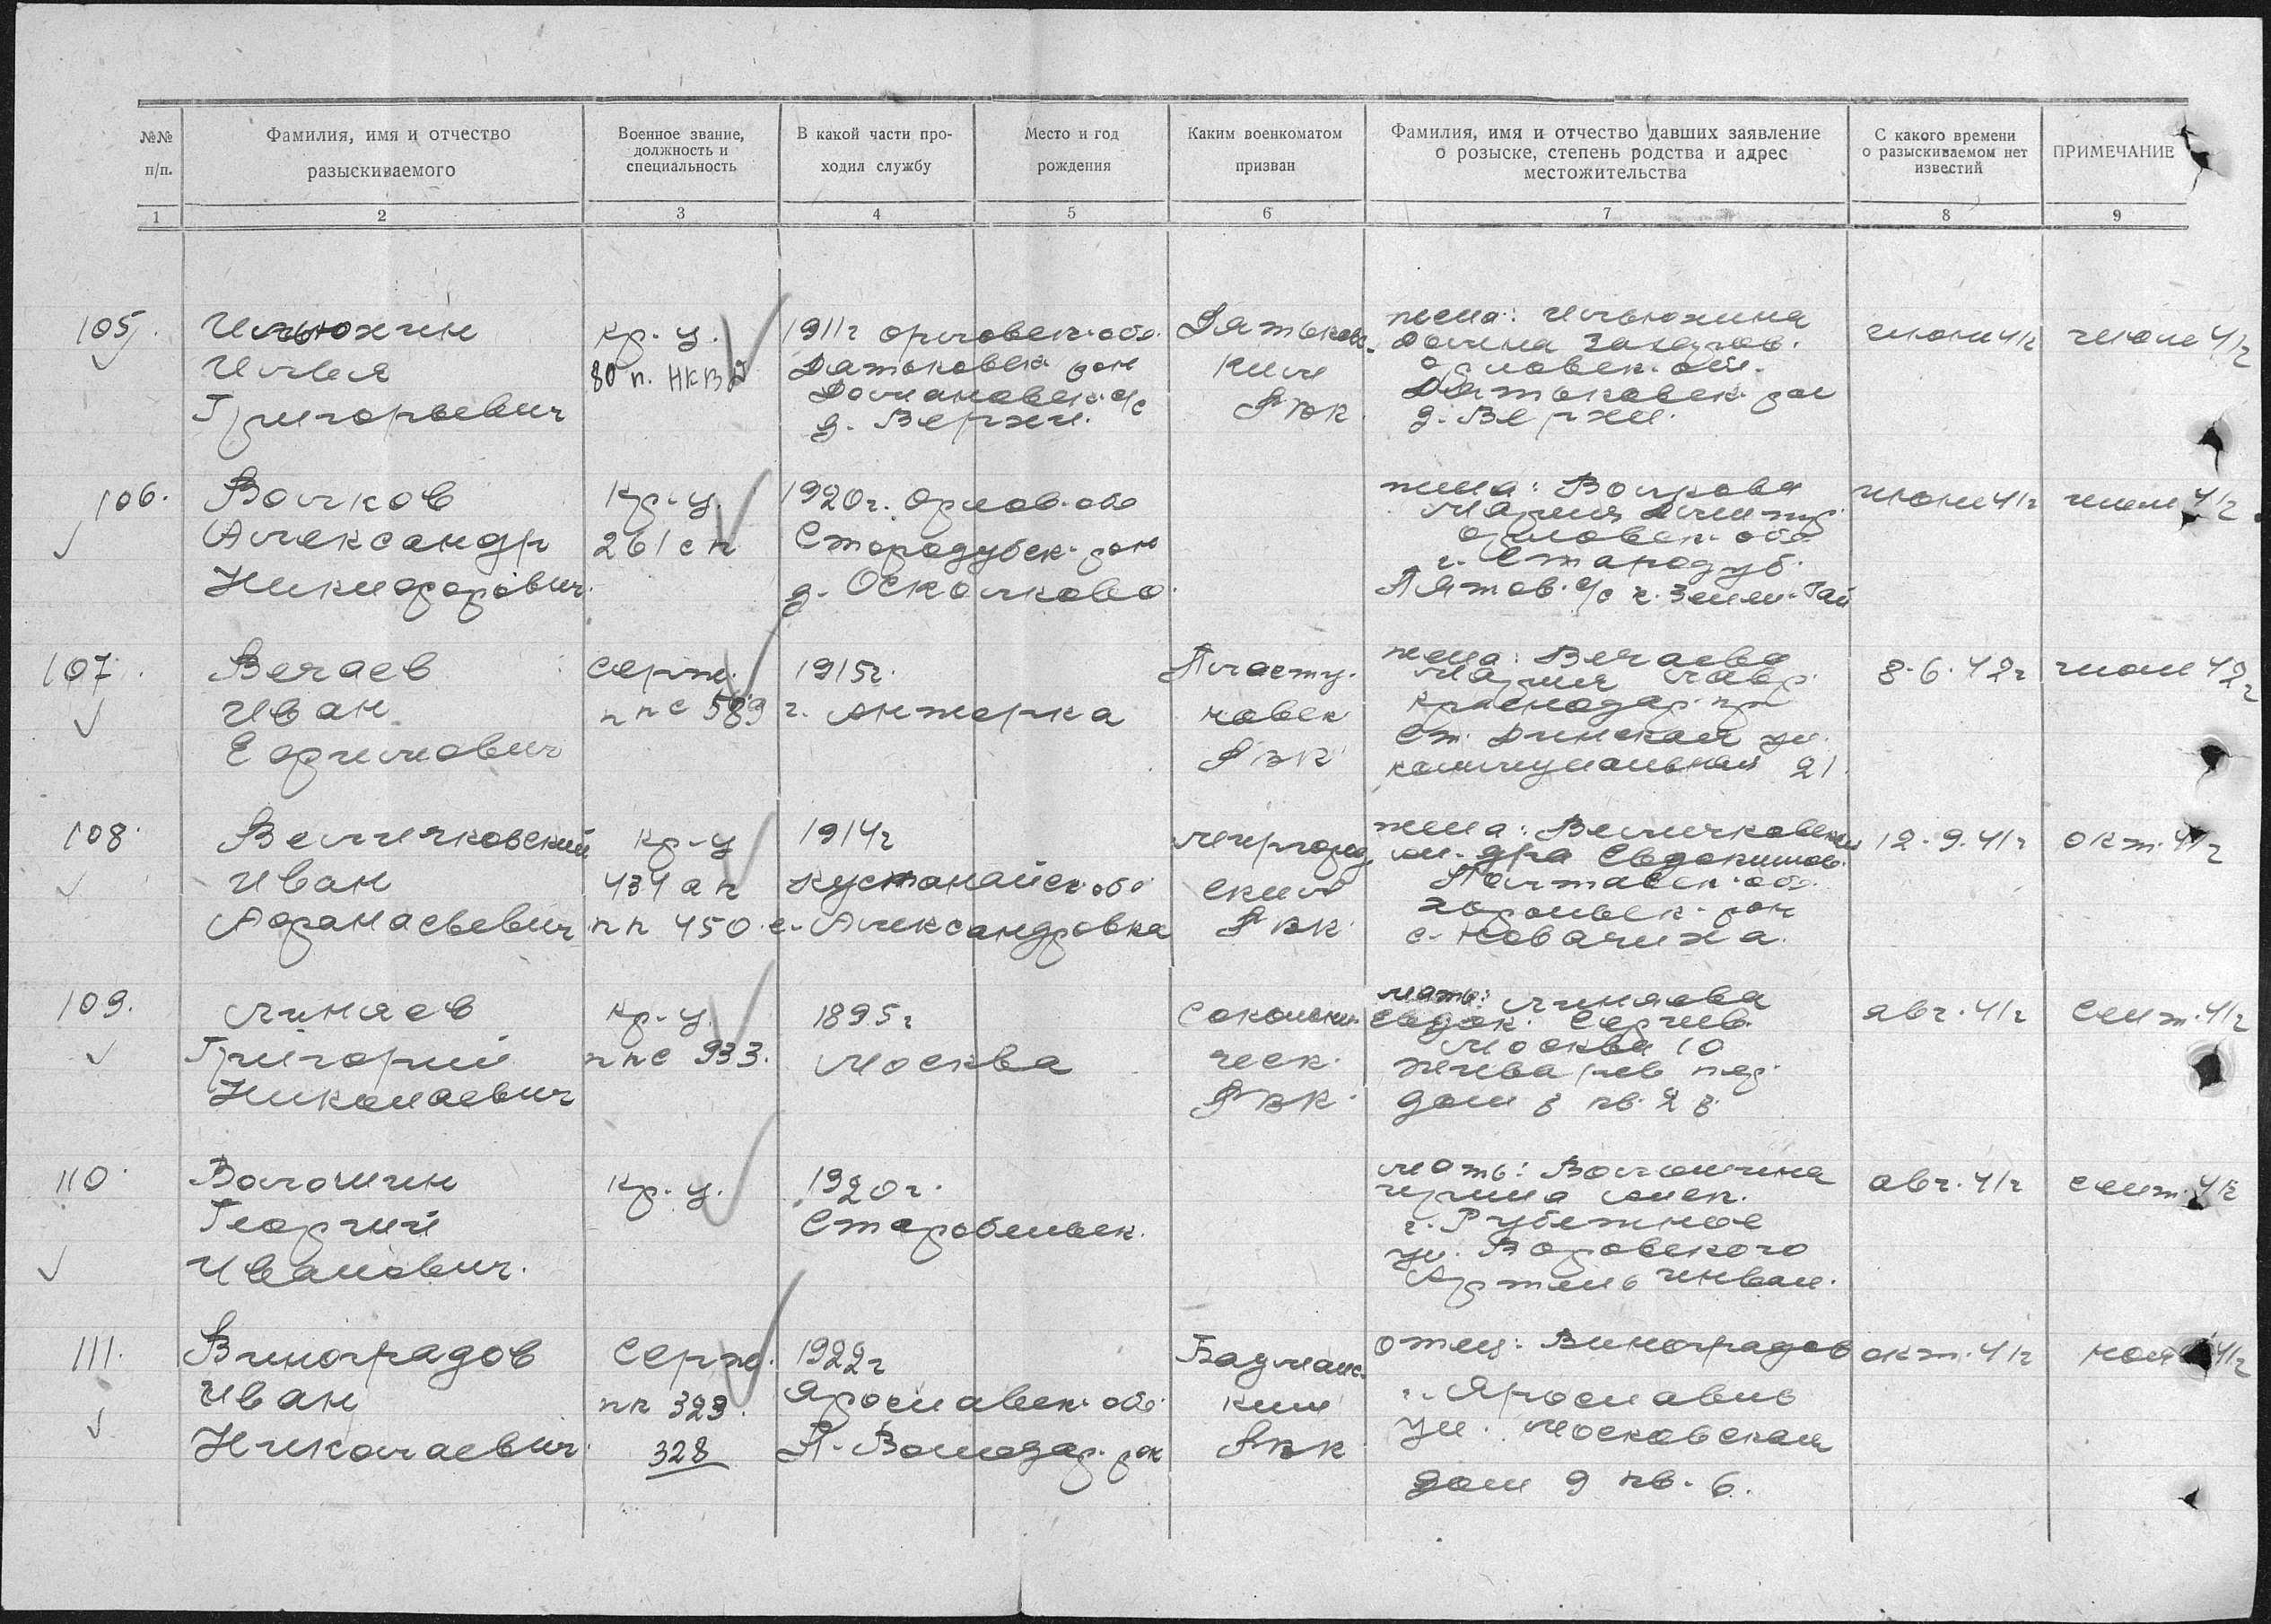 №№ п/п.
Фамилия, имя и отчество разыскиваемого
Военное звание, должность и специальность
В какой части проходил службу
Место и год рождения
Каким военкоматом призван
Фамилия, имя и отчество давших заявление о розыске, степень родства и адрес местожительства
С какого времени о разыскиваемом нет известий
ПРИМЕЧАНИЕ
1 2 3 4 5 6 7 8 9
105.
Ильюхин
Илья
Григорьевич
кр-ц.
80 п. НКВД
1911г орловск. обл.
Дятьковск. рон
с/с
д. Верхи.
Дятьковс-
кий
РВК
жена: Ильюхина
орловск. обл.
Дятьковск. рон
д. Верхи.
июнь 41г
июль 41г
106.
Волков
Александр
Никифорович.
Кр-ц.
261 сп
1920г. орлов. обл
Стародубск. рон
д. Осколково.
жена: Волкова
Мария Дмитр.
орловск. обл
г. Стародуб.
Пятов. с/с
июнь 41г
июль 41г.
107.
Вечаев
Иван
Ефимович
серж.
ппс 589
1915г.
г. Анжерка
Пласту-
новск
РВК
жена: Вечаева
Мария
Краснодар. кр
ст. Динская ул.
коммунальная 21.
8.6.42г
июль 42г
108.
Величковский
Иван
Афанасьевич
кр-ц
434 ап
пп 450
1914г
кустанайск обл
с. Александровка
миргород
ский
РВК
жена: Величковская
Ал-дра Евдокимов.
Полтавск. обл.
хорольск. рон
с. Ковалиха.
12.9.41г
окт. 41г
109.
Линяев
Григорий
Николаевич
кр-ц.
ппс 933.
1895г
Москва
Сокольни-
ческ.
РВК.
мать: Линяева
Евдок. Сергеев.
Москва 10
Живарев пер.
дом 8 кв. 28
авг. 41г
сент. 41г
110.
Волошин
Георгий
Иванович.
кр-ц.
1920г.
Старобельск.
мать: Волошина
Ирина Алек.
г. Рубежное
ул. Воровского
Артель инвал.
авг. 41г
сент. 41г
111.
Виноградов
Иван
Николаевич.
Серж.
пп 323.
328
1922г
Ярославск. обл.
П. Володар. рон
Бауманс-
кий
РВК
отец: Виноградов
г. Ярославль
ул. Московская
дом 9 кв. 6.
окт. 41г
41г